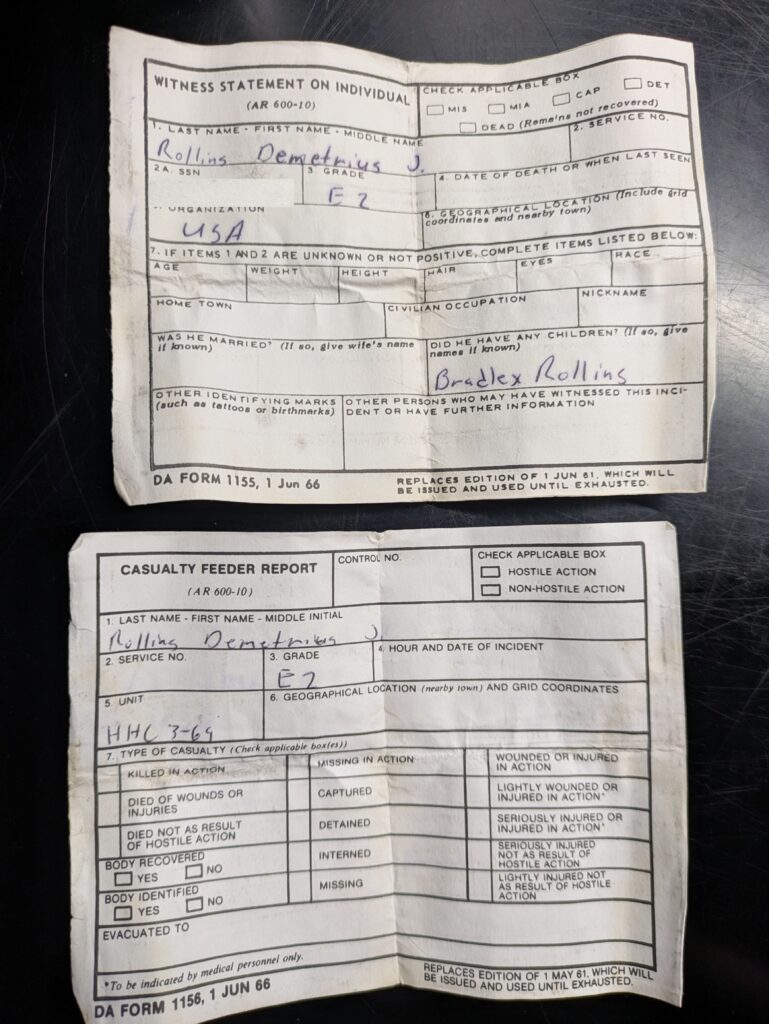 WITNESS STATEMENT ON INDIVIDUAL
(AR 600-10)
CHECK APPLICABLE BOX
MIS MIA CAP DET
DEAD (Remains not recovered)
1. LAST NAME - FIRST NAME - MIDDLE NAME
Rollins Demetrius J.
2. SERVICE NO.
2A. SSN
3 GRADE
E2
4. DATE OF DEATH OR WHEN LAST SEEN
ORGANIZATION
USA
6. GEOGRAPHICAL LOCATION (Include grid
coordinates and nearby town)
7. IF ITEMS 1 AND 2 ARE UNKNOWN OR NOT POSITIVE, COMPLETE ITEMS LISTED BELOW:
AGE WEIGHT HEIGHT HAIR EYES RACE
HOME TOWN
CIVILIAN OCCUPATION
NICKNAME
WAS HE MARRIED? (If so, give wife's name
if known)
DID HE HAVE ANY CHILDREN? (If so, give
names if known)
Bradlex Rollins
OTHER IDENTIFYING MARKS
(such as tattoos or birthmarks)
OTHER PERSONS WHO MAY HAVE WITNESSED THIS INCI-
DENT OR HAVE FURTHER INFORMATION
DA FORM 1155, 1 Jun 66
REPLACES EDITION OF 1 JUN 61, WHICH WILL
BE ISSUED AND USED UNTIL EXHAUSTED.
CASUALTY FEEDER REPORT
(AR 600-10)
CONTROL NO.
CHECK APPLICABLE BOX
HOSTILE ACTION
NON-HOSTILE ACTION
1. LAST NAME - FIRST NAME - MIDDLE INITIAL
Rollins Demetrius J.
2. SERVICE NO.
3. GRADE
E2
4. HOUR AND DATE OF INCIDENT
5. UNIT
HHC 3-69
6. GEOGRAPHICAL LOCATION (nearby town) AND GRID COORDINATES
7. TYPE OF CASUALTY (Check applicable box(es))
KILLED IN ACTION
DIED OF WOUNDS OR
INJURIES
DIED NOT AS RESULT
OF HOSTILE ACTION
BODY RECOVERED
YES NO
BODY IDENTIFIED
YES NO
MISSING IN ACTION
CAPTURED
DETAINED
INTERNED
MISSING
WOUNDED OR INJURED
IN ACTION
LIGHTLY WOUNDED OR
INJURED IN ACTION*
SERIOUSLY INJURED OR
INJURED IN ACTION*
SERIOUSLY INJURED
NOT AS RESULT OF
HOSTILE ACTION
LIGHTLY INJURED NOT
AS RESULT OF HOSTILE
ACTION
EVACUATED TO
*To be indicated by medical personnel only.
DA FORM 1156, 1 JUN 66
REPLACES EDITION OF 1 MAY 61, WHICH WILL
BE ISSUED AND USED UNTIL EXHAUSTED.